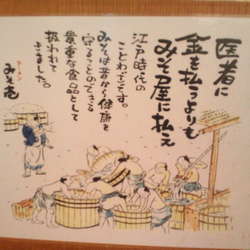 医者に
金を払うよりも
みそ屋に払え
江戸時代の
ことわざです。
みそは昔から健康を
守ることのできる
貴重な食品として
扱われて
きました。